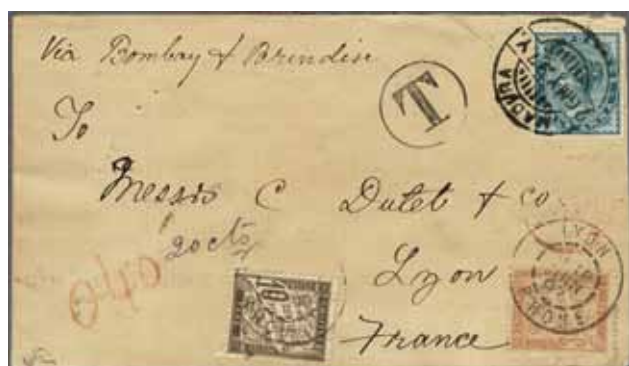 Via Bombay & Brindisi
T
MADURA
To
Messrs C Dutet & co
20 cts
Lyon
France
LYON
RHONE
10
040